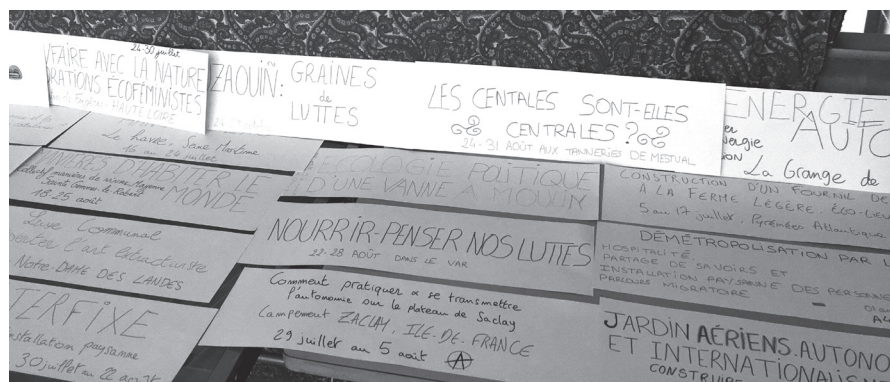 24-30 juillet
FAIRE AVEC LA NATURE
RATIONS ÉCOFÉMINISTES
HAUTE LOIRE
ZAOUIÑ: GRAINES
de
LUTTES
LES CENTALES SONT-ELLES
CENTRALES ?
24-31 AOÛT AUX TANNERIES DE MESTUAL
ENERGIE
AUTO
La Grange de
Le havre, Seine Maritime
16 au 24 juillet
MANIÈRES D'HABITER LE
MONDE
18-25 août
LOGIE POLITIQUE
D'UNE VANNE A MOULIN
CONSTRUCTION D'UN FOURNIL DE
A LA FERME LÉGÈRE, ÉCO-LIEU
5 au 17 juillet, Pyrénées Atlantique
Communal
l'art
NOTRE-DAME DES LANDES
NOURRIR-PENSER NOS LUTTES
22-28 AOÛT DANS LE VAR
DÉMÉTROPOLISATION PAR L
HOSPITALITÉ,
PARTAGE DE SAVOIRS ET
INSTALLATION PAYSANNE DES PERSONN
PARCOURS MIGRATOIRE
TERFIXE
installation paysanne
30 juillet au 22 août
Comment pratiquer & se transmettre
l'autonomie sur le plateau de Saclay
Campement ZACLAY, ILE-DE-FRANCE
29 juillet au 5 août
JARDIN AÉRIENS. AUTONO
ET INTERNATIONALIS
CONSTRUIR